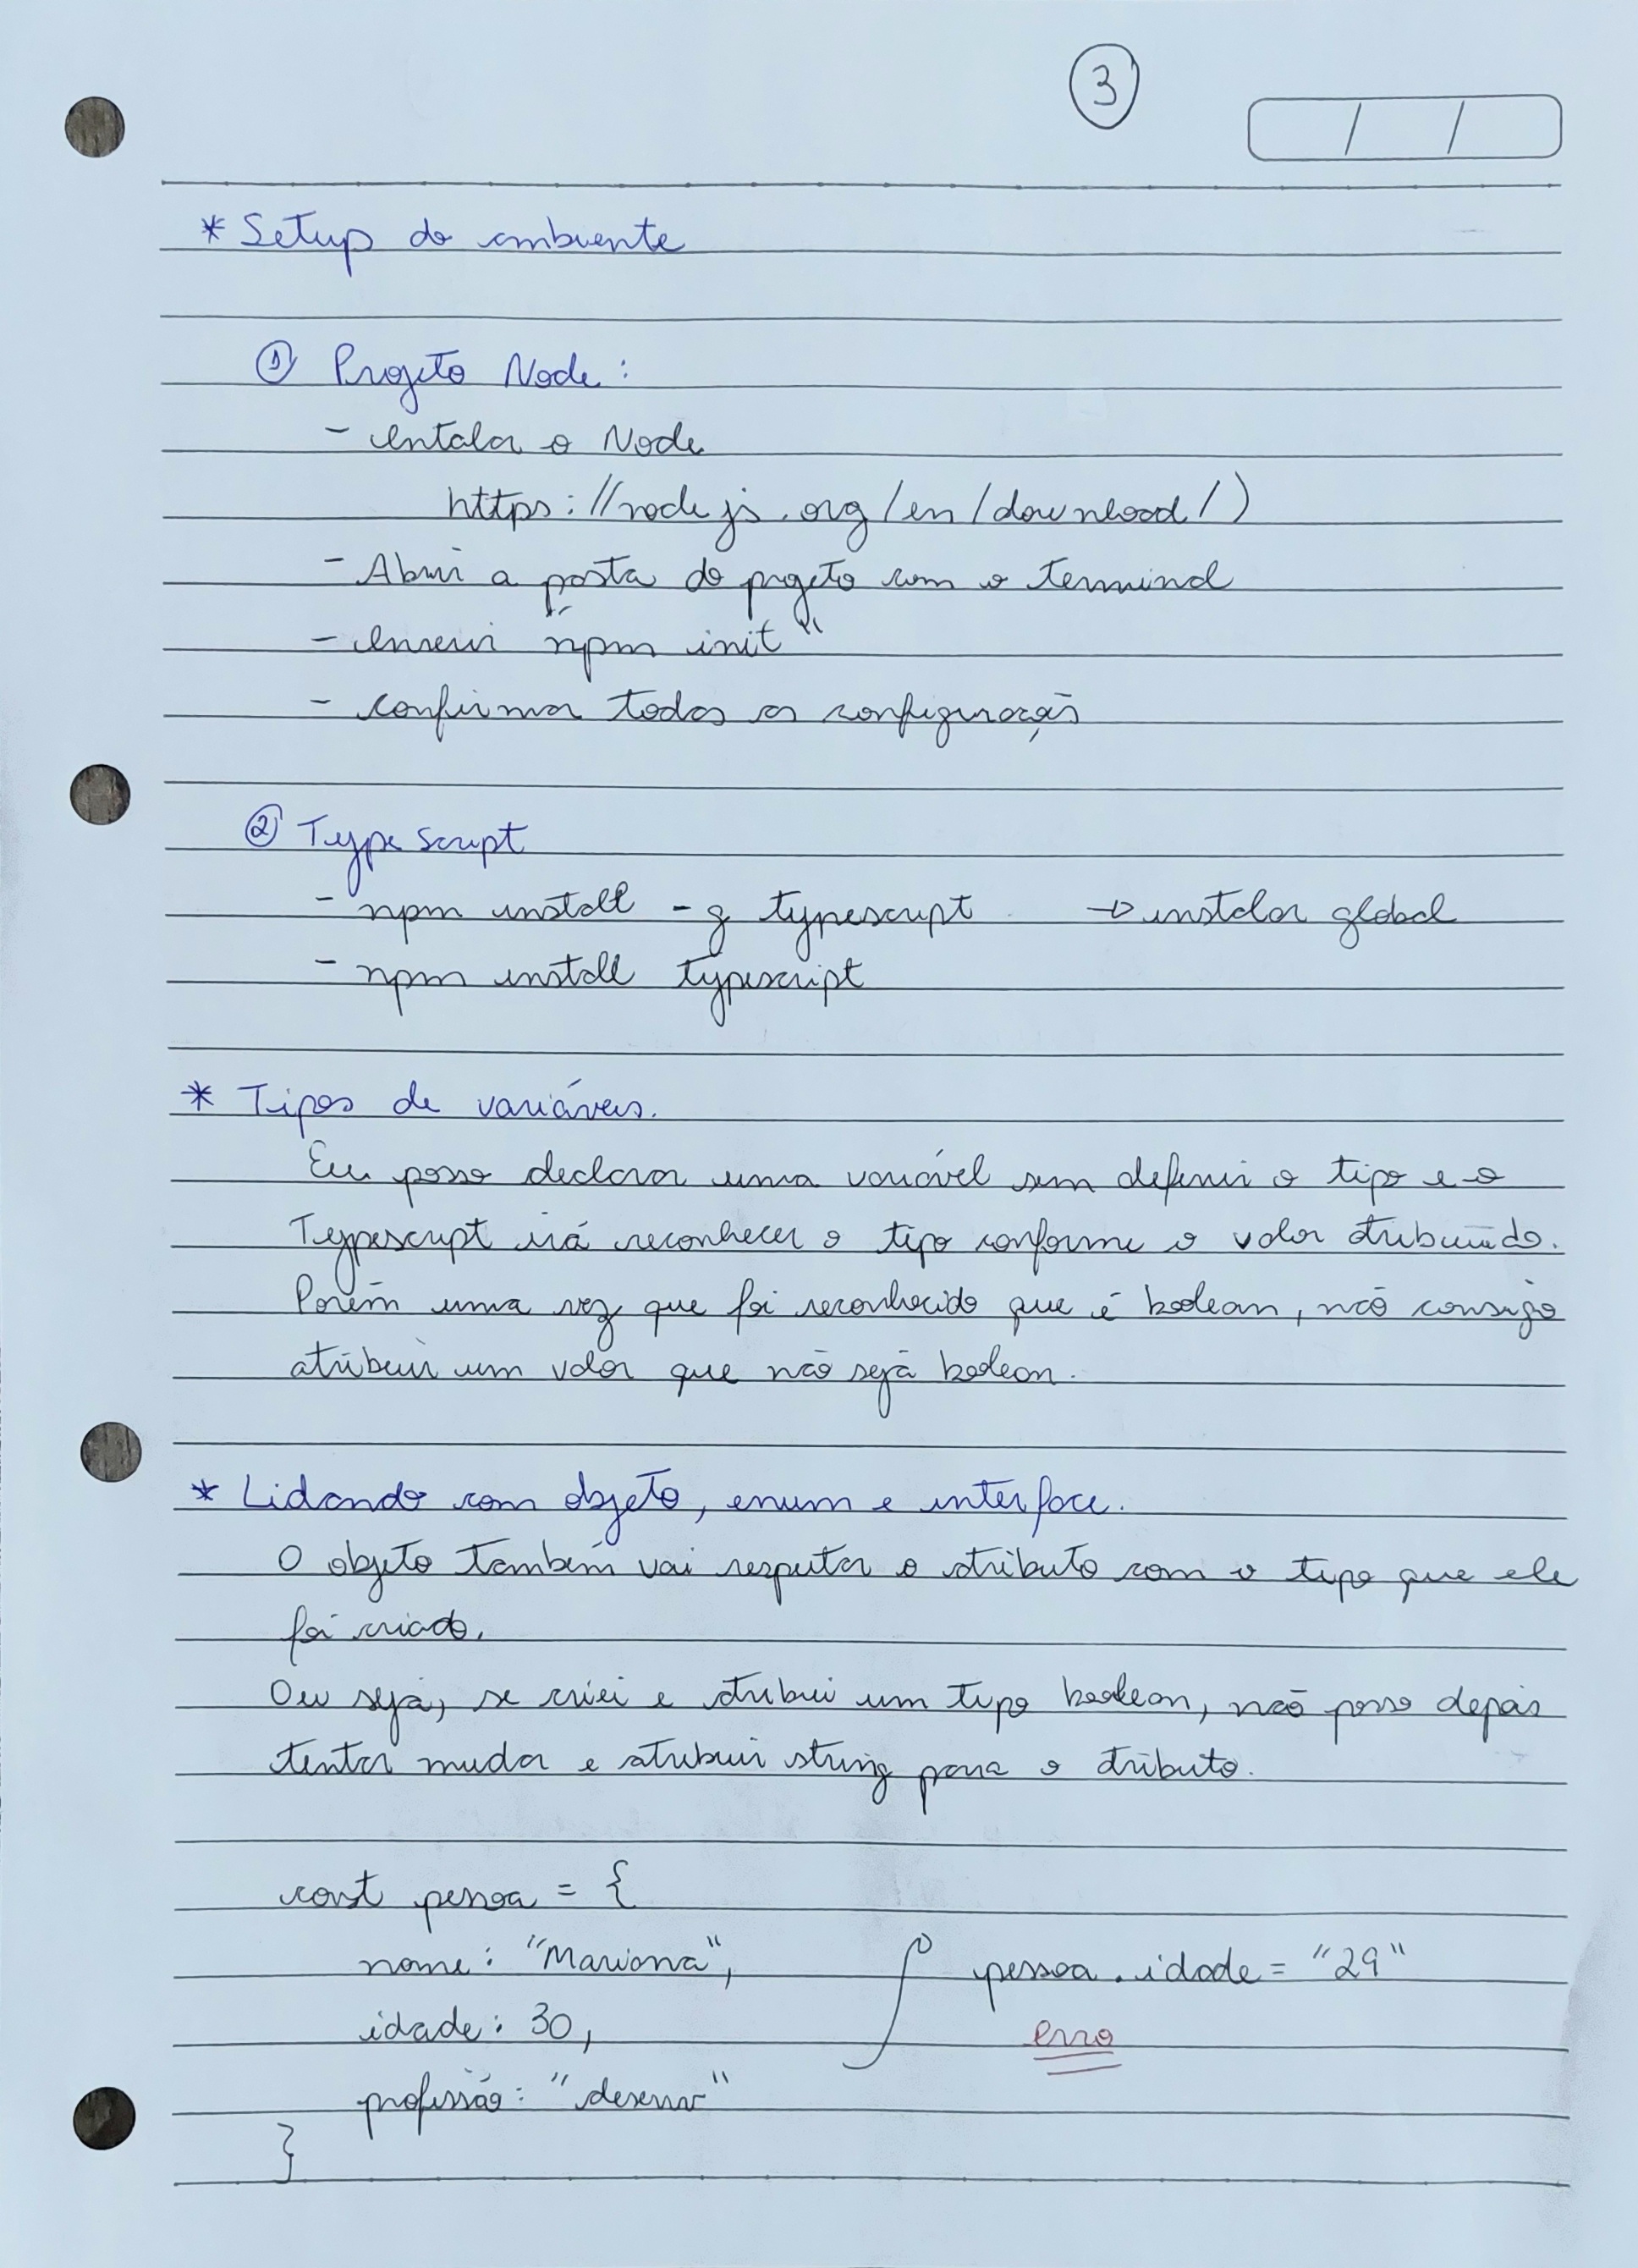 3
/ /
* Setup do ambiente
① Projeto Node:
- instalar o Node
https://nodejs.org/en/download/)
- Abrir a pasta do projeto com o terminal
- inserir "npm init"
- confirmar todas as configuração
② TypeScript
- npm install -g typescript → instalar global
- npm install typescript
* Tipos de variáveis.
Eu posso declarar uma variável sem definir o tipo e o
Typescript irá reconhecer o tipo conforme o valor atribuído.
Porém uma vez que foi reconhecido que é boolean, não consigo
atribuir um valor que não seja boolean.
* Lidando com objeto, enum e interface.
O objeto também vai respeitar o atributo com o tipo que ele
foi criado.
Ou seja, se criei e atribui um tipo boolean, não posso depois
tentar mudar e atribuir string para o atributo.
const pessoa = {
nome: "Mariana", pessoa.idade = "29"
idade: 30, erro
profissão: "desenv"
}